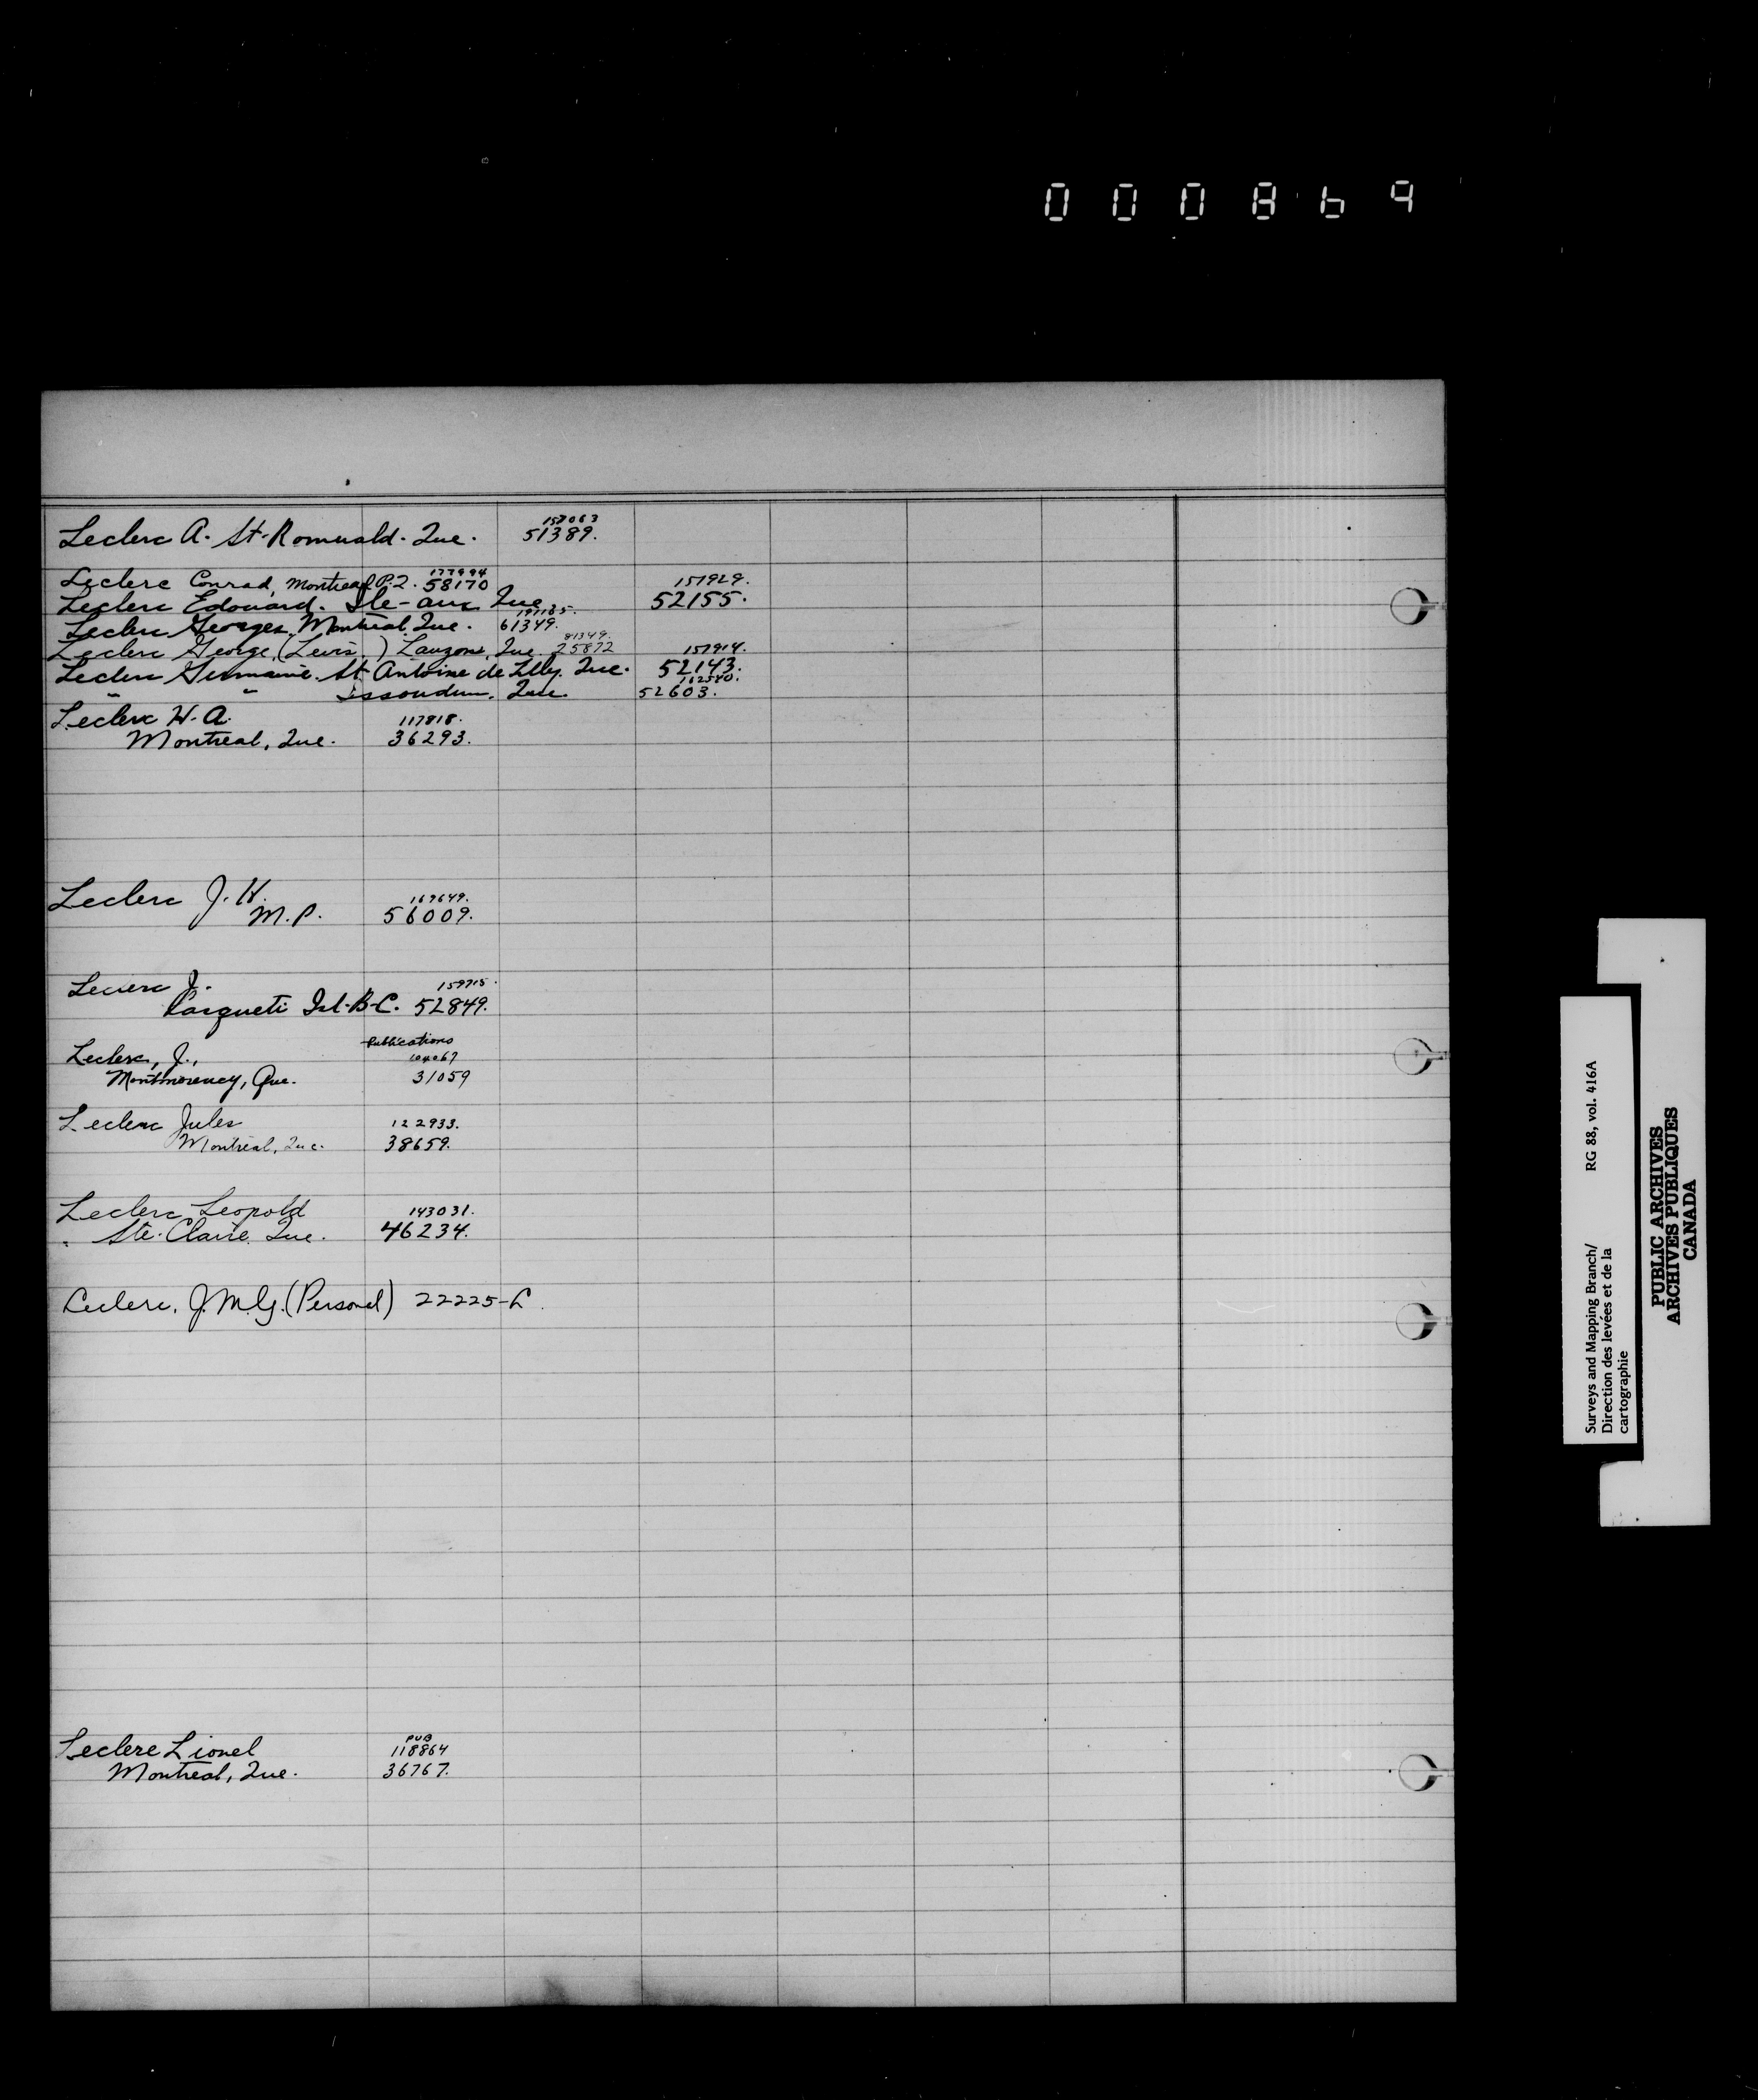 000869
157063
Leclerc A. St-Romuald. Que. 51389.
177994
Leclerc Conrad, Montreal P.Q. 58170
157929.
Leclerc Edouard. Ile-aux Que 52155.
191185.
Leclerc Georges, Montreal, Que. 61349.
81349.
Leclerc George, (Levis, ) Lauzon, Que. 25872
157914.
Leclerc Germaine. St Antoine de Tilly. Que. 52143.
162540.
" " Issoudun, Que. 52603.
Leclerc H. A. 117818.
Montreal, Que. 36293.
Leclerc J. H. 169649.
M.P. 56009.
Leclerc J. 159715.
Lasqueti Isl. B-C. 52849.
Publications
Leclerc, J., 104067
Montmorency, Que. 31059
Leclerc Jules 122933.
Montreal, Que. 38659.
Leclerc Leopold 143031.
" Ste. Claire. Que. 46234.
Leclerc, J.M.G. (Personal) 22225-L.
PUB
Leclere Lionel 118864
Montreal, Que. 36767.
Surveys and Mapping Branch/ RG 88, vol. 416A
Direction des levées et de la
cartographie
PUBLIC ARCHIVES
ARCHIVES PUBLIQUES
CANADA